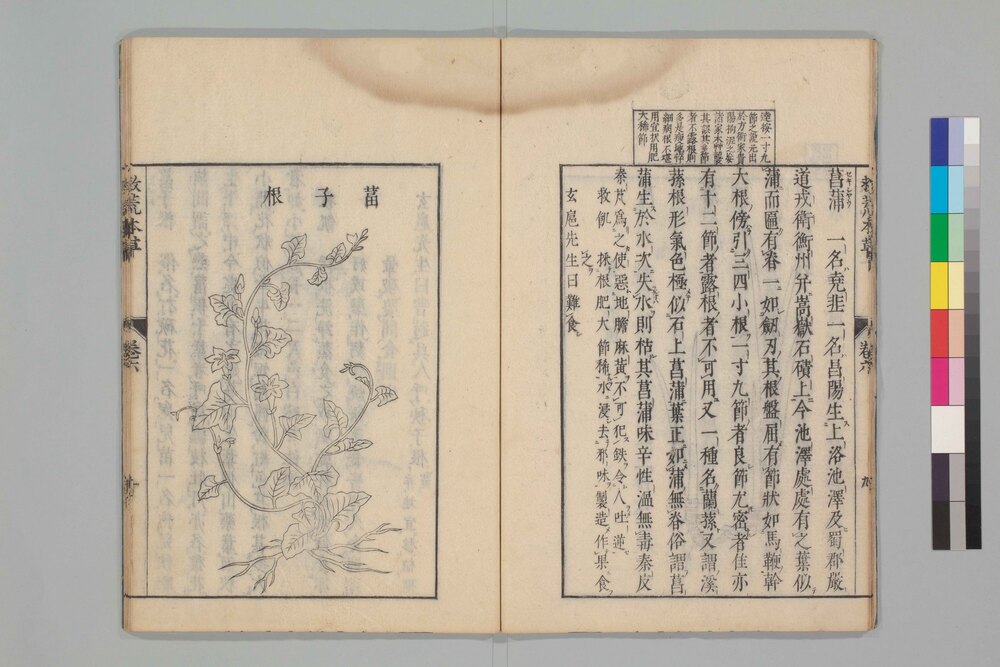 遠按一寸九
節之說元出
於方術家貴
大稀節
菖蒲 一名堯韭一名昌陽生上洛池澤及蜀郡嚴
道戎衛衡州并嵩嶽石磧上今池澤處處有之葉似
蒲而匾有脊一如劒刃其根盤屈有節狀如馬鞭幹
大根傍引三四小根一寸九節者良節尤密者佳亦
有十二節者露根者不可用又一種名蘭蓀又謂溪
蓀根形氣色極似石上菖蒲葉正如蒲無脊俗謂菖
蒲生於水次失水則枯其菖蒲味辛性溫無毒秦皮
秦艽爲之使惡地膽麻黃不可犯鉄令人吐逆
救飢 採根肥大節稀水浸去邪味製造作果食
之
玄扈先生曰難食
救荒本草 卷六
菖子根
救荒本草 卷六